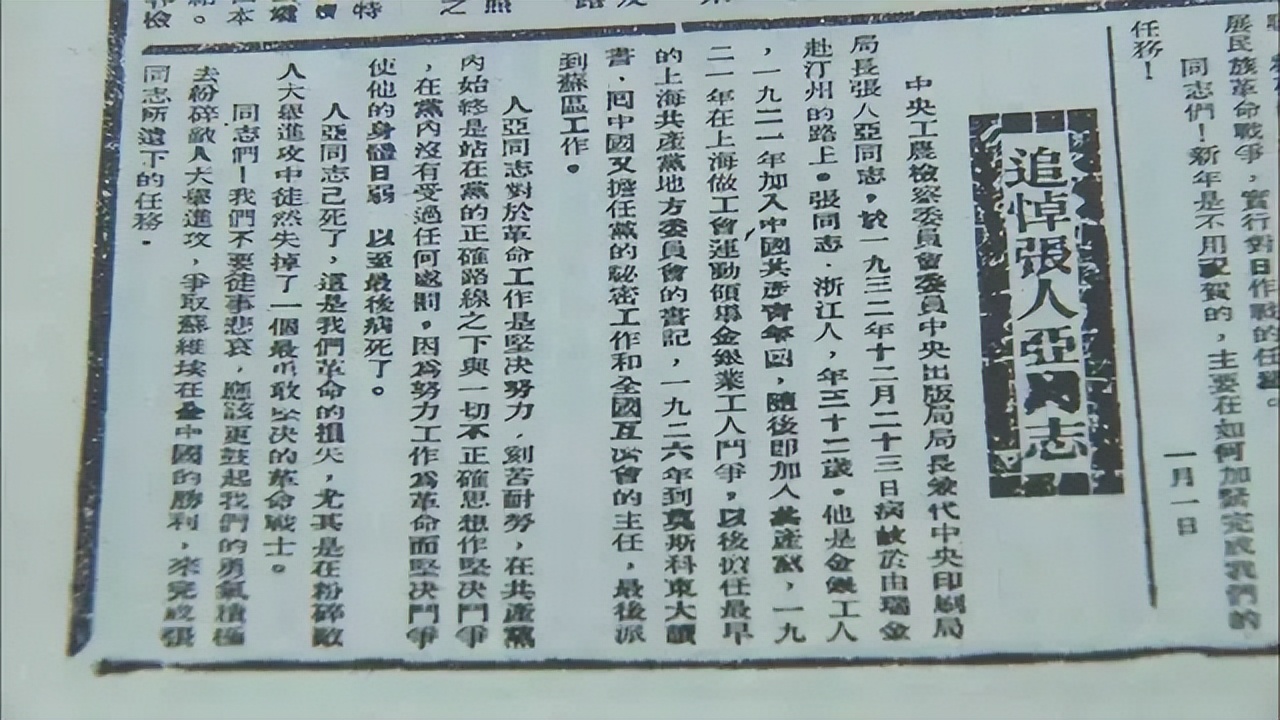 展民族革命戰爭，實行對日作戰的任務。
同志們！新年是不用祝賀的，主要在如何加緊完成我們的
任務！
一月一日
追悼張人亞同志
中央工農檢察委員會委員中央出版局局長兼代中央印刷局
局長張人亞同志，於一九三二年十二月二十三日病故於由瑞金
赴汀州的路上。張同志．浙江人，年三十二歲。他是金銀工人
，一九二一年加入中國共產青年團，隨後即加入共產黨，一九
二一年在上海做工會運動領導金銀業工人鬥爭，以後擔任最早
的上海共產黨地方委員會的書記，一九二六年到莫斯科東大讀
書．回中國又擔任黨的秘密工作和全國互濟會的主任，最後派
到蘇區工作。
人亞同志對於革命工作是堅決努力．刻苦耐勞，在共產黨
內始終是站在黨的正確路線之下與一切不正確思想作堅決鬥爭
，在黨內沒有受過任何處罰。因為努力工作為革命而堅決鬥爭
使他的身體日弱　以至最後病死了。
人亞同志已死了，這是我們革命的損失，尤其是在粉碎敵
人大舉進攻中徒然失掉了一個最勇敢堅決的革命戰士。
同志們！我們不要徒事悲哀，應該更鼓起我們的勇氣積極
去粉碎敵人大舉進攻，爭取蘇維埃在全中國的勝利，來完成張
同志所遺下的任務．